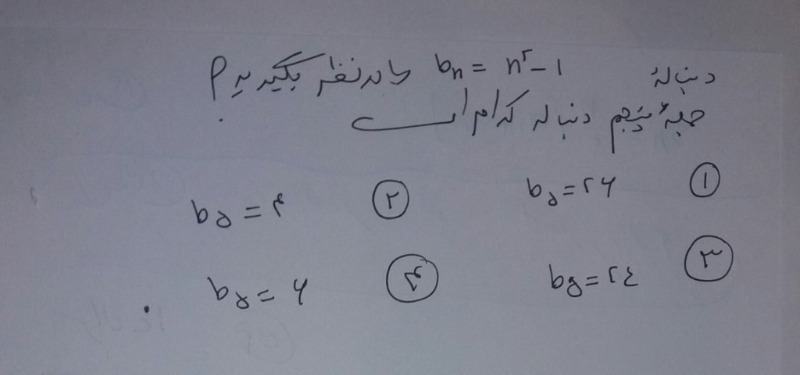 دنبالهٔ bₙ = n² − 1 را در نظر بگیرید؟
جملهٔ پنجم دنباله کدام است
① b₅ = ۲۶ ② b₅ = ۴
③ b₅ = ۲٤ ④ b₅ = ۶